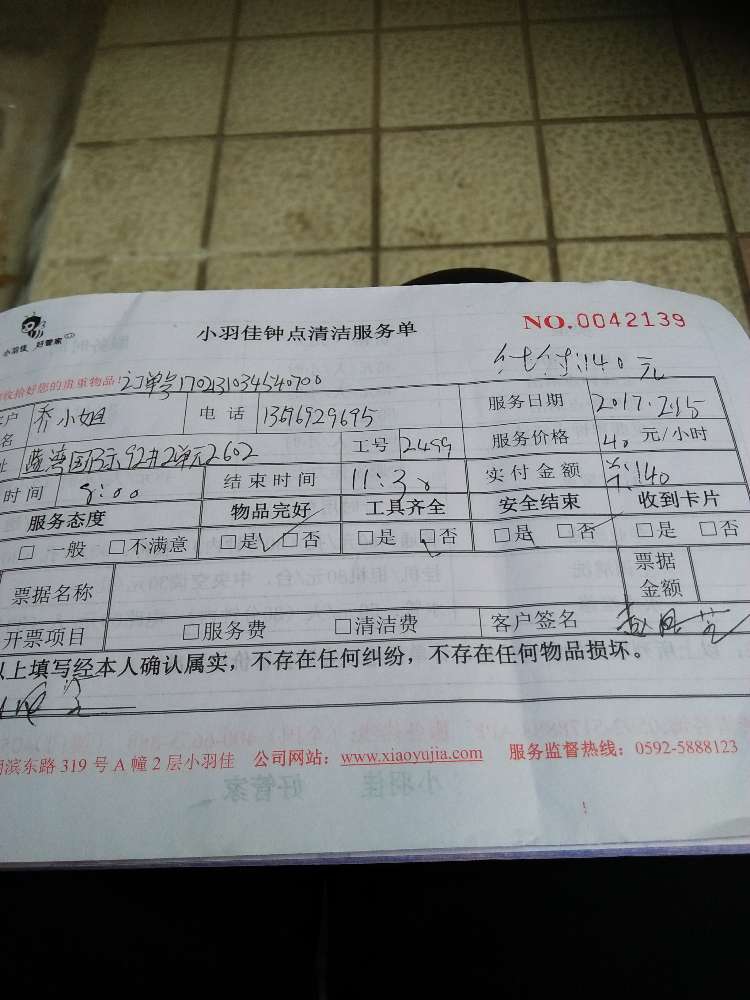 小羽佳 好管家
小羽佳钟点清洁服务单
NO.0042139
收拾好您的贵重物品! 订单号1702131034540700
付:140元
名 乔小姐 电话 13616929695 服务日期 2017.2.15
址 国际92#2单元2602 工号 2499 服务价格 40 元/小时
时间 8:00 结束时间 11:30 实付金额 140
服务态度 物品完好 工具齐全 安全结束 收到卡片
□ 一般 □不满意 □是 □否 □是 □否 □是 □否 □是 □否
票据名称 票据金额
开票项目 □服务费 □清洁费 客户签名
以上填写经本人确认属实，不存在任何纠纷，不存在任何物品损坏。
滨东路 319 号 A 幢 2 层小羽佳 公司网站：www.xiaoyujia.com 服务监督热线：0592-5888123